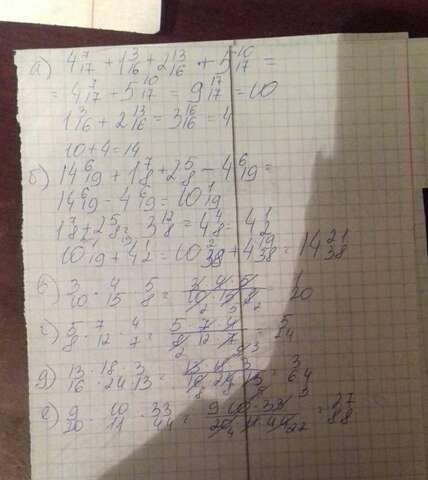 а) 4 7/17 + 1 3/16 + 2 13/16 + 5 10/17 =
= 4 7/17 + 5 10/17 = 9 17/17 = 10
1 3/16 + 2 13/16 = 3 16/16 = 4
10 + 4 = 14
б) 14 6/19 + 1 7/8 + 2 5/8 - 4 6/19 =
14 6/19 - 4 6/19 = 10 1/19
1 7/8 + 2 5/8 = 3 12/8 = 4 4/8 = 4 1/2
10 1/19 + 4 1/2 = 10 2/38 + 4 19/38 = 14 21/38
в) 3/10 · 4/15 · 5/8 = 3·4·5/10·15·8 = 1/20
г) 5/8 · 7/12 · 4/7 = 5·7·4/8·12·7 = 5/24
д) 13/16 · 18/24 · 3/13 = 13·18·3/16·24·13 = 3/64
е) 9/20 · 10/11 · 33/44 = 9·10·33/20·11·44 = 27/88